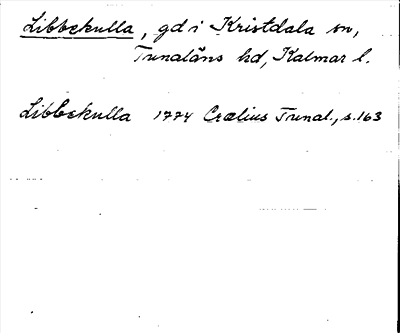 Libbekulla, gd i Kristdala sn,
Tunaläns hd, Kalmar l.
Libbekulla 1774 Crælius Tunal., s. 163